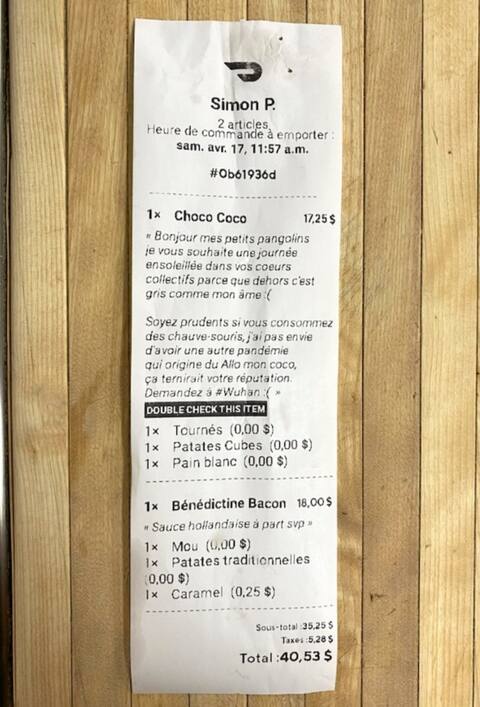 Simon P.
2 articles
Heure de commande à emporter :
sam. avr. 17, 11:57 a.m.
#0b61936d
1× Choco Coco 17,25 $
« Bonjour mes petits pangolins
je vous souhaite une journée
ensoleillée dans vos coeurs
collectifs parce que dehors c'est
gris comme mon âme :(
Soyez prudents si vous consommez
des chauve-souris, j'ai pas envie
d'avoir une autre pandémie
qui origine du Allo mon coco,
ça ternirait votre réputation.
Demandez à #Wuhan :( »
DOUBLE CHECK THIS ITEM
1× Tournés (0,00 $)
1× Patates Cubes (0,00 $)
1× Pain blanc (0,00 $)
1× Bénédictine Bacon 18,00 $
« Sauce hollandaise à part svp »
1× Mou (0,00 $)
1× Patates traditionnelles
(0,00 $)
1× Caramel (0,25 $)
Sous-total :35,25 $
Taxes :5,28 $
Total :40,53 $